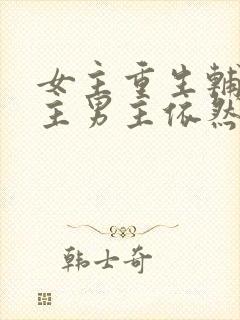 女主重生辅
主男主依然
韩士奇